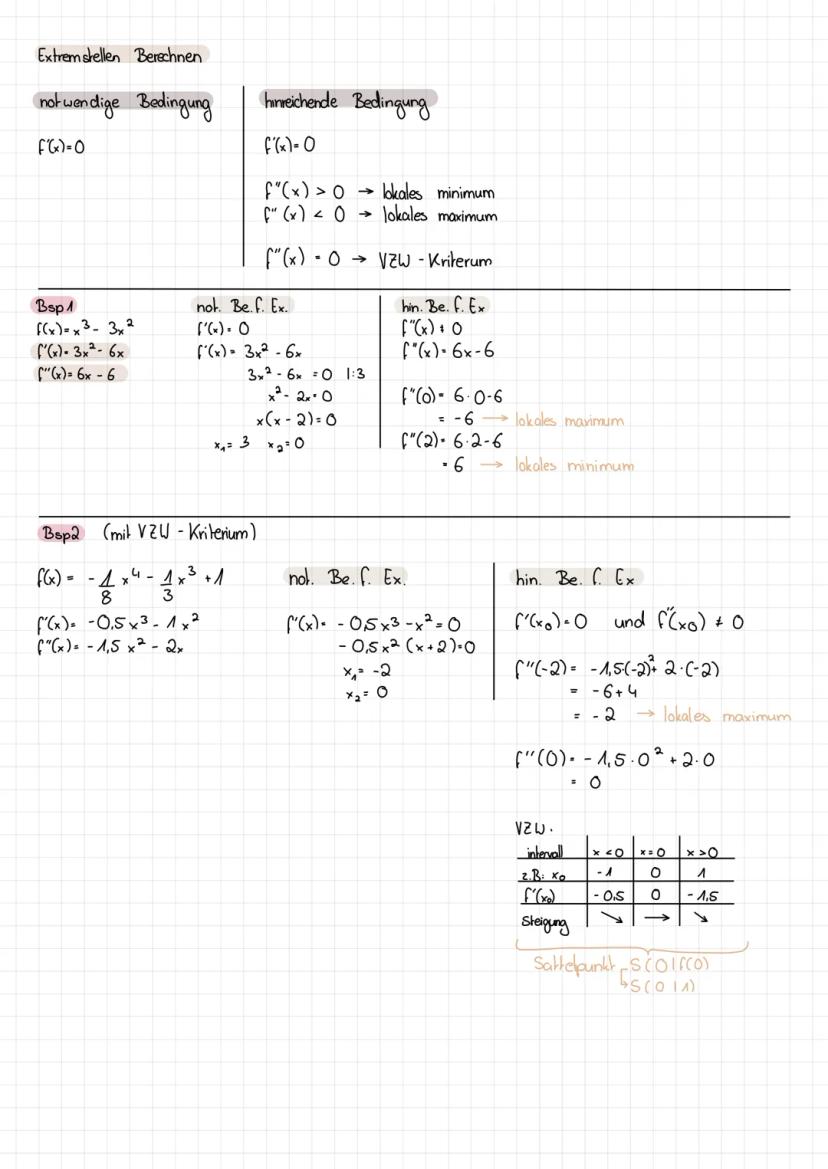 Extremstellen Berechnen
notwendige Bedingung
f'(x)=0
hinreichende Bedingung
f'(x)=0
f"(x) > 0 → lokales minimum
f"(x) < 0 → lokales maximum
f"(x) = 0 → VZW - Kriterum
Bsp1
f(x)= x³ - 3x²
f'(x)= 3x² - 6x
f"(x)= 6x - 6
not. Be. f. Ex.
f'(x) = 0
f'(x) = 3x² - 6x
3x² - 6x = 0 |:3
x² - 2x = 0
x(x - 2) = 0
x₁= 3 x₂= 0
hin. Be. f. Ex
f"(x) ≠ 0
f"(x) = 6x-6
f"(0) = 6·0-6
= -6 → lokales maximum
f"(2) = 6·2-6
= 6 → lokales minimum
Bsp2 (mit VZW - Kriterium)
f(x) = - 1/8 x⁴ - 1/3 x³ + 1
f'(x)= -0,5x³ - 1x²
f"(x)= -1,5 x² - 2x
not. Be. f. Ex.
f'(x)= - 0,5x³ - x² = 0
- 0,5x² (x+2) = 0
x₁= -2
x₂= 0
hin. Be. f. Ex
f'(x₀) = 0 und f"(x₀) ≠ 0
f"(-2) = -1,5(-2)²+ 2·(-2)
= -6+4
= -2 → lokales maximum
f"(0) = - 1,5 · 0² + 2·0
= 0
VZW.
intervall x < 0 x = 0 x > 0
z.B: x₀ -1 0 1
f'(x₀) -0,5 0 -1,5
Steigung ↘ → ↘
Sattelpunkt S(0|f(0)
↳ S(0|1)